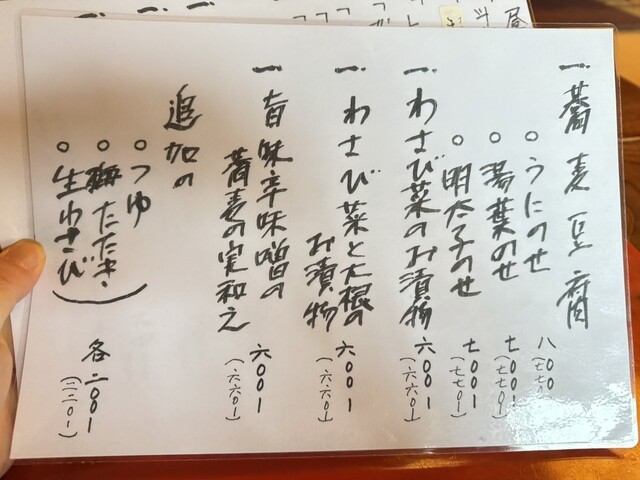 一.蕎麦豆腐
○うにのせ 八〇〇
○湯葉のせ 七〇〇ー
(七七〇ー)
○明太子のせ 七〇〇ー
(七七〇ー)
一.わさび菜のお漬物 六〇〇ー
(六六〇ー)
一.わさび菜と大根の
お漬物 六〇〇ー
(六六〇ー)
一.旨味辛味噌の
蕎麦の実和え 六〇〇ー
(六六〇ー)
追加の
○つゆ
○梅たたき
○生わさび) 各二〇〇ー
(二二〇ー)